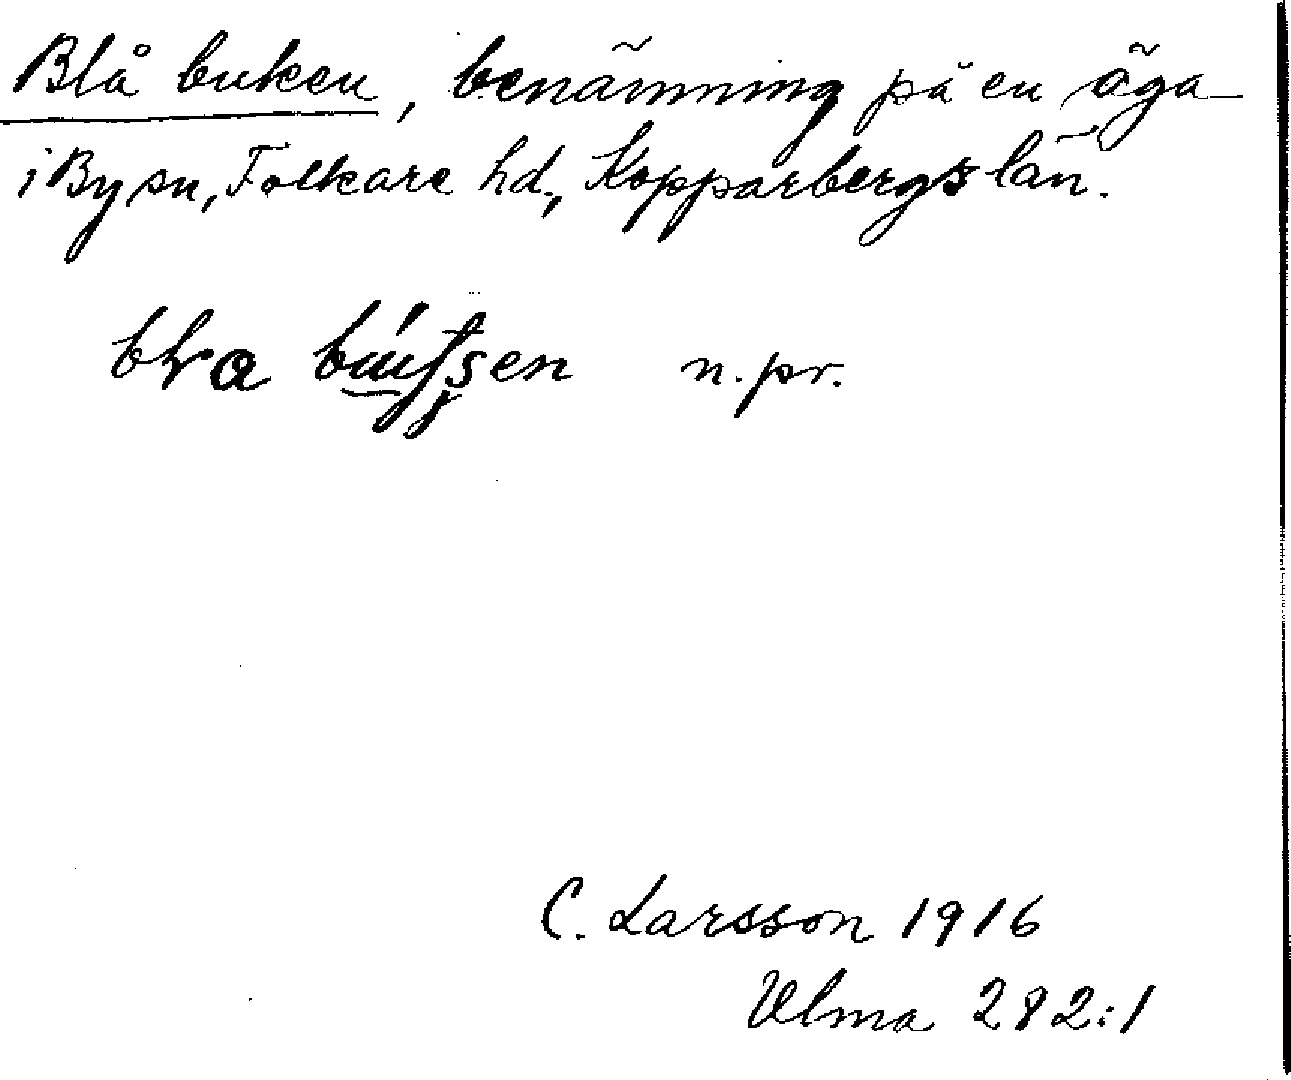 Blå buken, benämning på en äga
i By sn, Folkare hd, Kopparbergs län.
n. pr.
C. Larsson 1916
Ulma 282:1